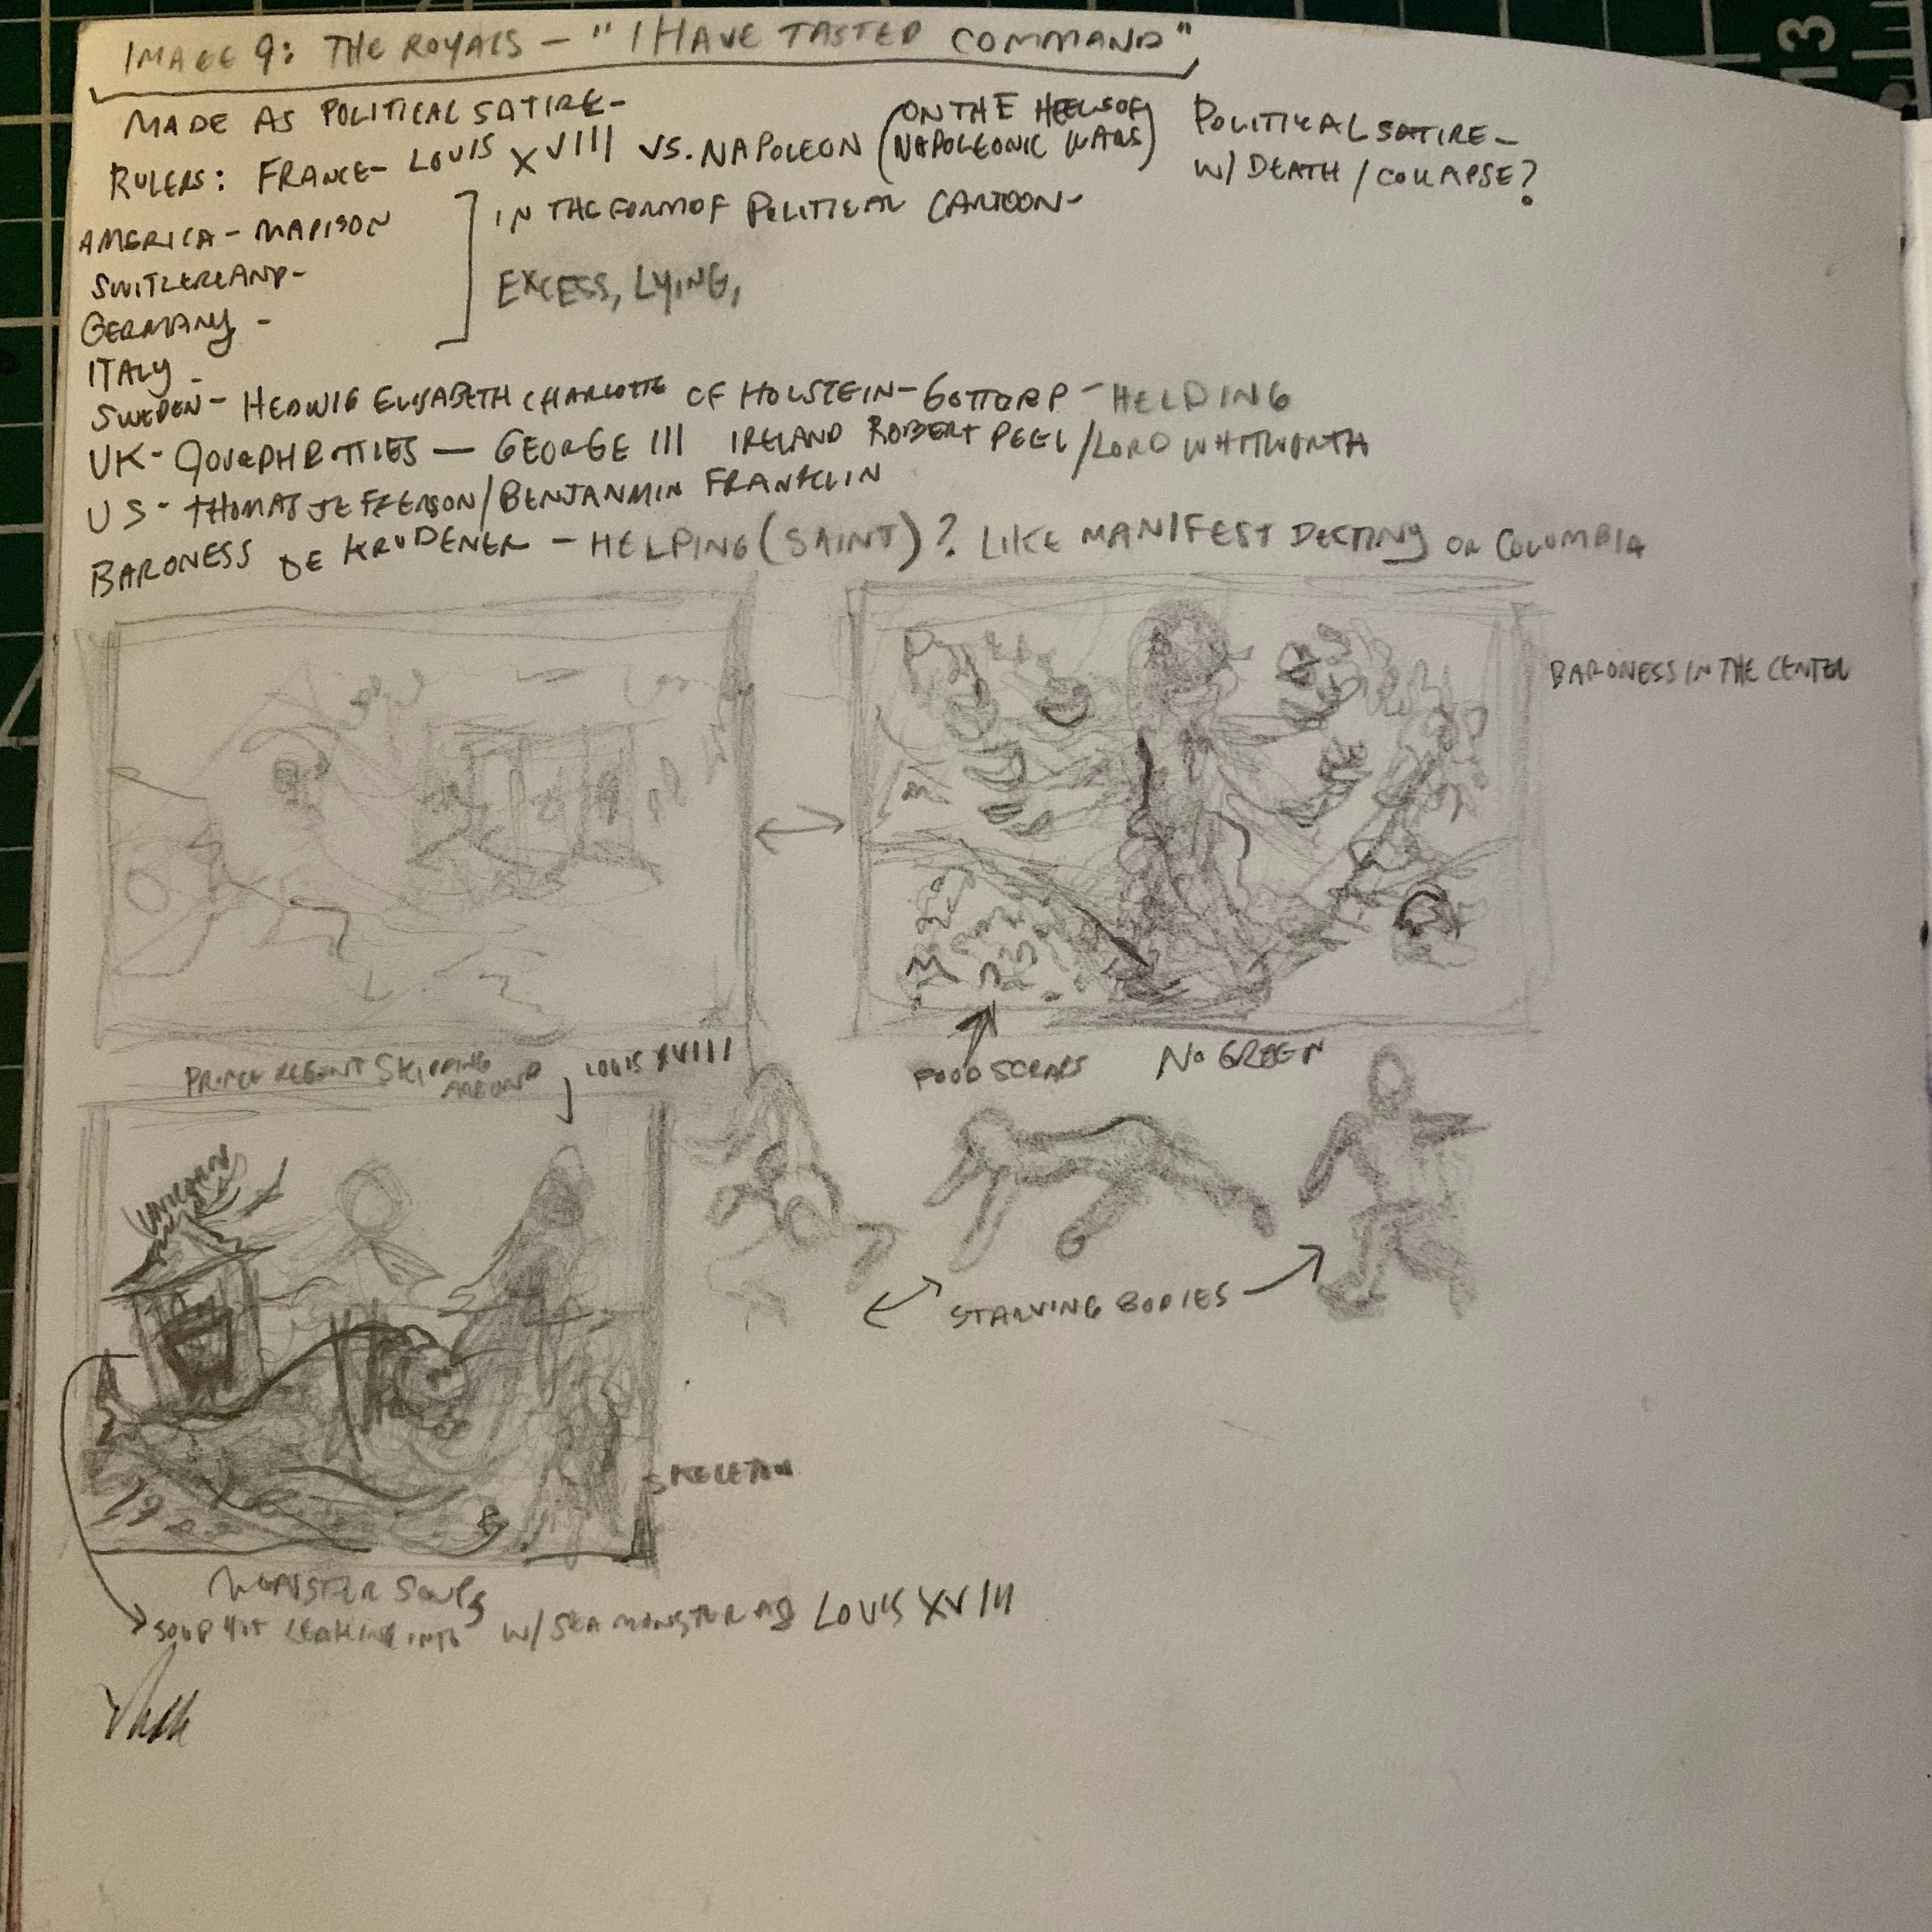 IMAGE 9: THE ROYALS – "I HAVE TASTED COMMAND"
MADE AS POLITICAL SATIRE-
RULERS: FRANCE- LOUIS XVIII VS. NAPOLEON (ON THE HEELS OF NAPOLEONIC WARS)
POLITICAL SATIRE-
W/ DEATH / COLLAPSE?
AMERICA - MADISON
SWITZERLAND-
GERMANY -
ITALY -
IN THE FORM OF POLITICAL CARTOON-
EXCESS, LYING,
SWEDEN- HEDWIG ELISABETH CHARLOTTE OF HOLSTEIN-GOTTORP -
UK- — GEORGE III IRELAND ROBERT PEEL/LORD WHITWORTH
US- THOMAS JEFFERSON/BENJANMIN FRANKLIN
BARONESS DE KRUDENER - HELPING (SAINT)? LIKE MANIFEST DESTINY OR COLUMBIA
BARONESS IN THE CENTER
FOOD SCRAPS
NO GREEN
PRINCE REGENT SKIPPING AROUND
LOUIS XVIII
UNICORN
STARVING BODIES
SKELETON
MONSTER SOUPS
SOUP POT LEAKING INTO W/ SEA MONSTER AS LOUIS XVIII